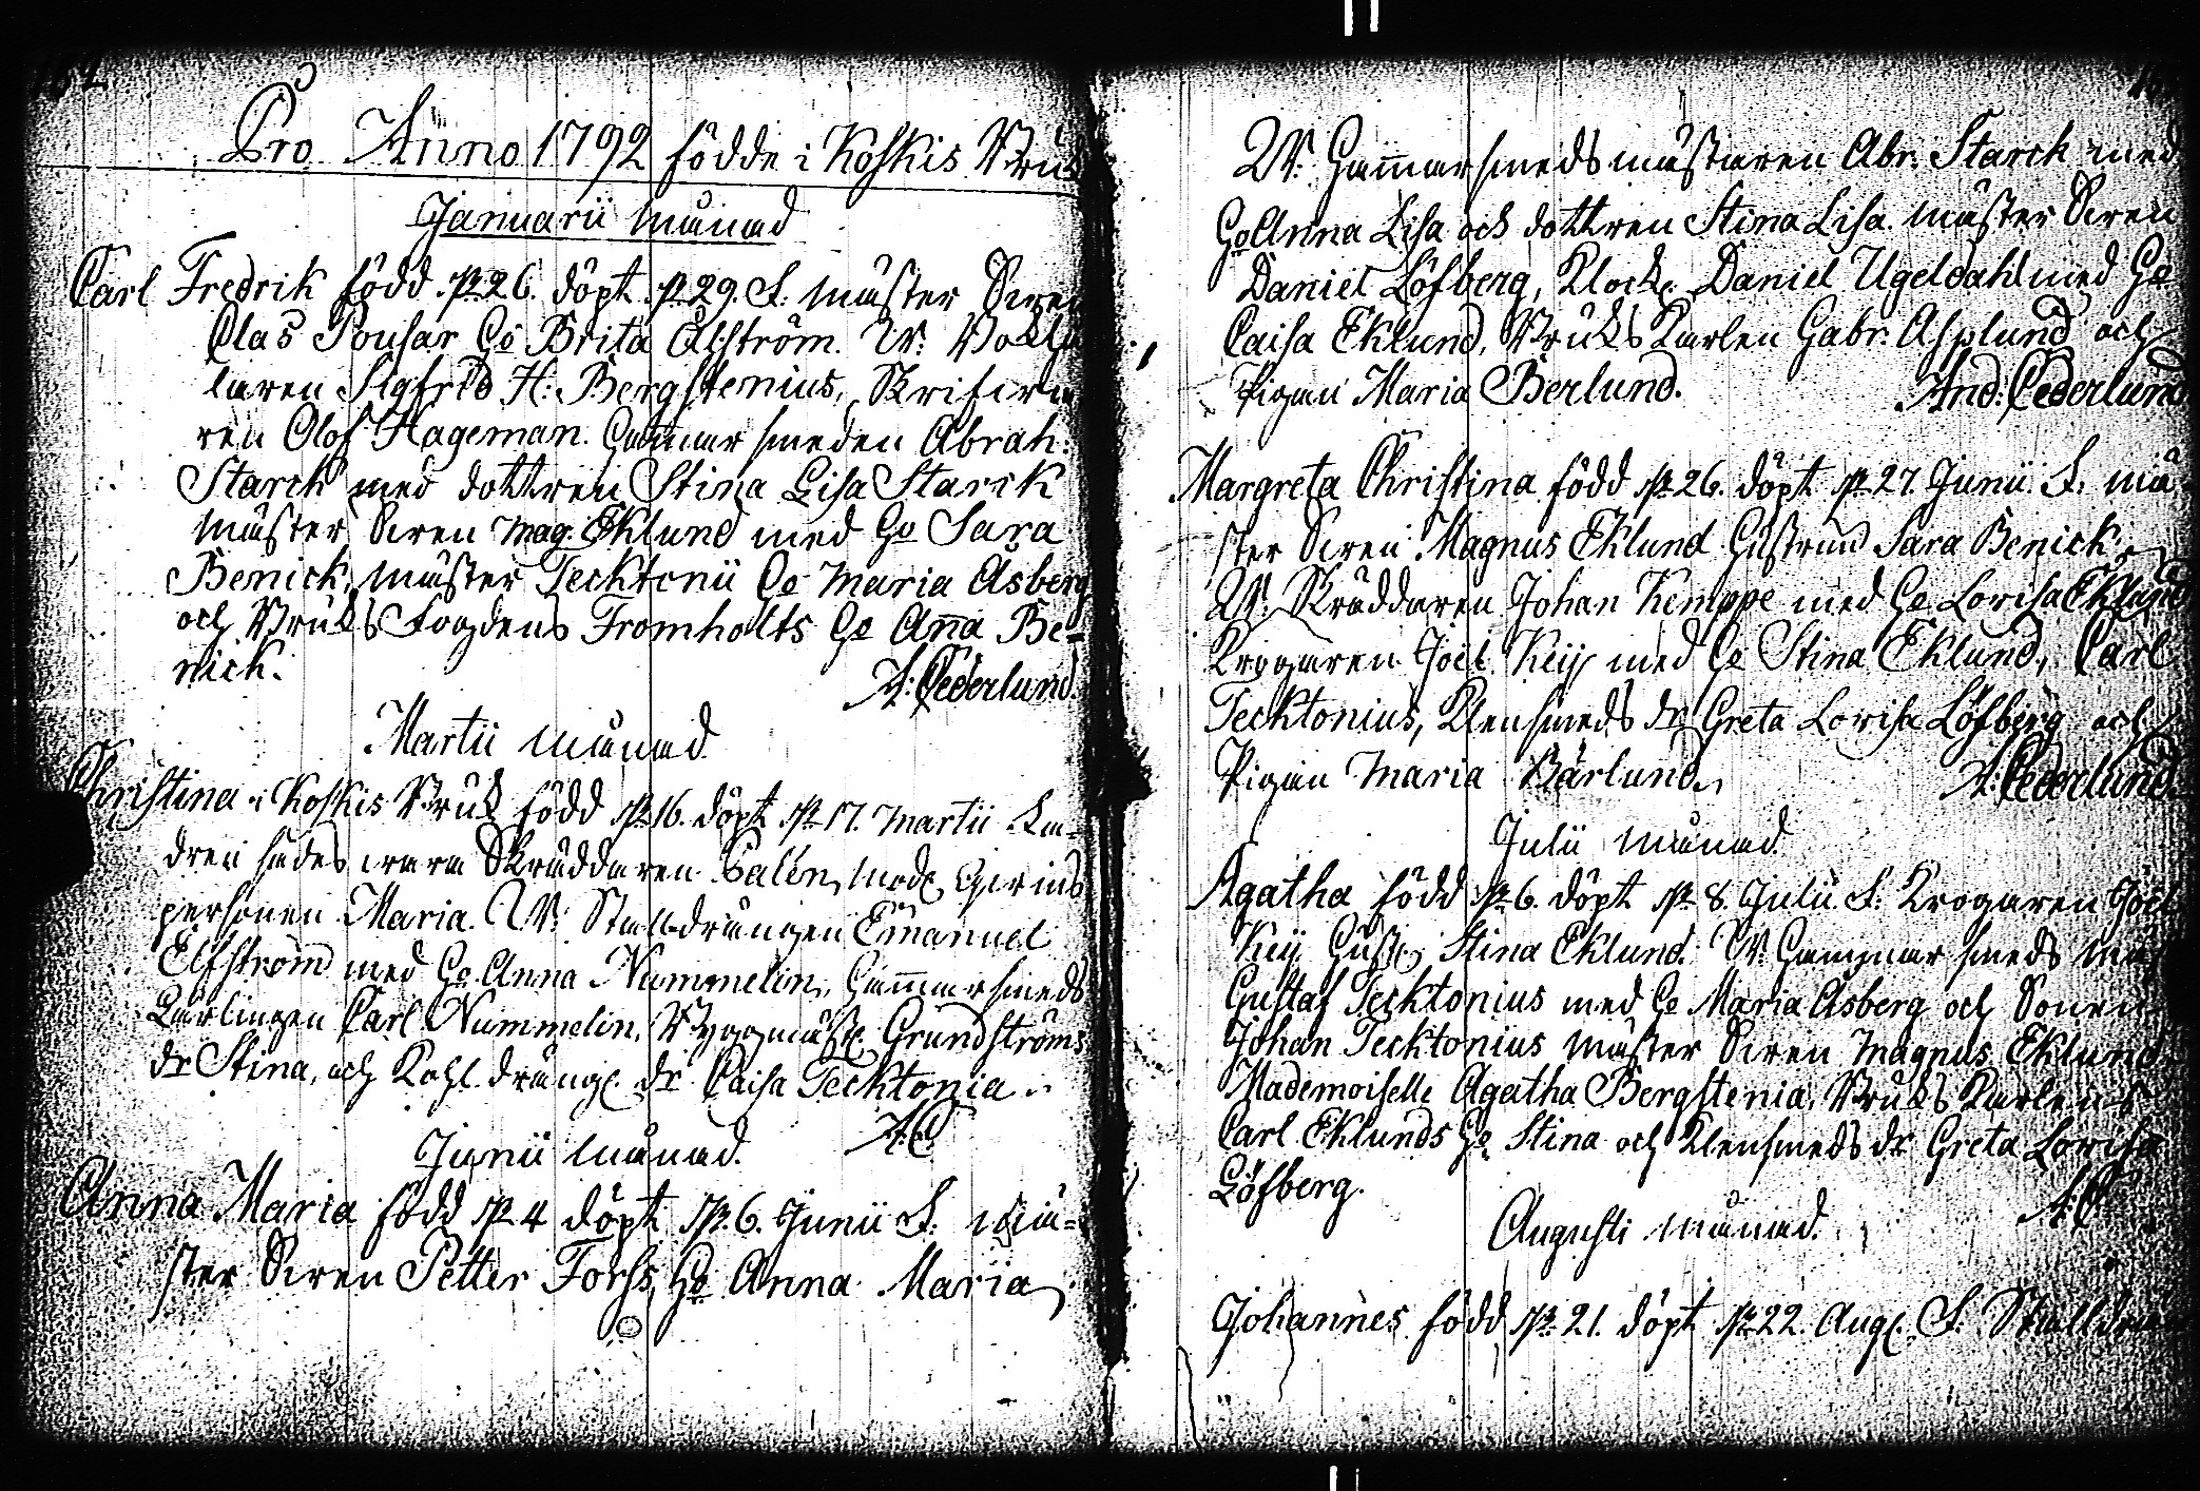 Pro Anno 1792 födde i Koskis Bruk
Januarii månad
Carl Fredrik född d. 26. döpt d. 29. F. mäster Sven
Clas Pousar Ho Brita Alström. W: Bokhål
laren Sigfrid H: Bergstenius, Skrifva
ren Olof Hageman. Hammar smeden Abrah:
Starck med dottren Stina Lisa Starck
mäster Sven Mag. Eklund med Ho Sara
Benick, mäster Tecktonii Ho Maria Asberg
och Bruks Fogdens Fromholts Ho Anna Be-
nick.
A: Cederlund.
Martii månad
Christina i Koskis Bruk född d. 16. döpt d. 17. Martii Fa-
dren sades vara Skräddaren Salén, mod.
personen Maria. W: Stalldrängen Emanuel
Elfström med Ho Anna Nummelin, Hammarsmeds
Lärlingen Carl Nummelin, Byggmäst. Grundströms
dr Stina, och Kohl. dräng. dr Caisa Tecktonia.
A:C
Junii månad.
Anna Maria född d. 4 döpt d. 6. Junii F. mä-
ster Sven Petter Forss, Ho Anna Maria
W: Hammarsmedsmästaren Abr: Starck med
Ho Anna Lisa och dottren Stina Lisa. mäster Sven
Daniel Löfberg, Klock. Daniel Ugeldahl med Ho
Caisa Eklund, Bruks Karlen Gabr: Asplund och
Pigan Maria Berlund.
And: Cederlund
Margreta Christina född d. 26. döpt d. 27. Junii F. mä-
ster Sven Magnus Eklund Hustrun Sara Benick.
W: Skräddaren Johan Kemppe med Ho Lovisa Eklund
Krögaren Joel Keij med Ho Stina Eklund, Carl
Tecktonius, Klensmeds dr Greta Lovisa Löfberg och
Pigan Maria Bärlund.
A: Cederlund.
Julii månad.
Agatha född d. 6. döpt d. 8. Julii F: Krogaren Joel
Keij Hust. Stina Eklund. W: Hammar smeds mäst
Gustaf Tecktonius med Ho Maria Asberg och Sonen
Johan Tecktonius mäster Sven Magnus Eklund
Mademoiselle Agatha Bergstenia, Bruks Karlens
Carl Eklunds Ho Stina och Klensmeds dr Greta Lovisa
Löfberg.
A:C
Augusti månad.
Johannes född d. 21. döpt d. 22. Aug. F: Stalldrän